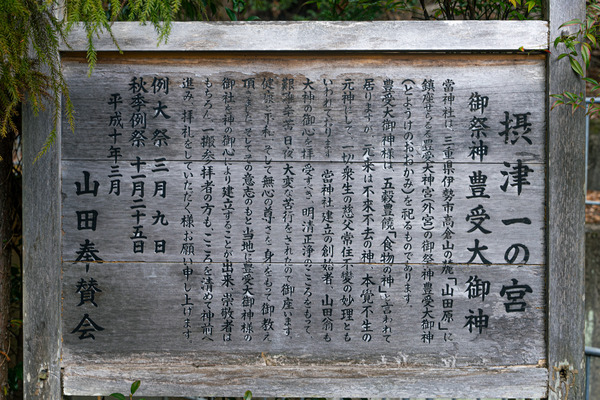 摂津一の宮
御祭神 豊受大御神
当神社は、三重県伊勢市高倉山の麓「山田原」に
鎮座まします豊受大神宮(外宮)の御祭神豊受大御神
(とようけのおおかみ)を祀るものであります。
豊受大御神様は、五穀豊饒「食物の神」と言われて
居りますが、元来は不来不去の神、本覚不生の
元神にして、一切衆生の慈父常住不変の妙理とも
いわれております。当神社建立の創始者、山田翁も
大神の御心を拝受すべき、明清正浄のこころをもって、
日夜、大変な苦行をされたので御座います。
そして無心の尊さを、身をもって御教え
頂きました。そしてその意志のもと当地に豊受大御神様の
御社を神の御心により建立することが出来、崇敬者は
もちろん、一般参拝者の方も、こころを清めて神前へ
進み、拝礼をしていただく様お願い申し上げます。
例大祭 三月九日
秋季例祭 十一月二十五日
平成十年三月
山田奉賛会